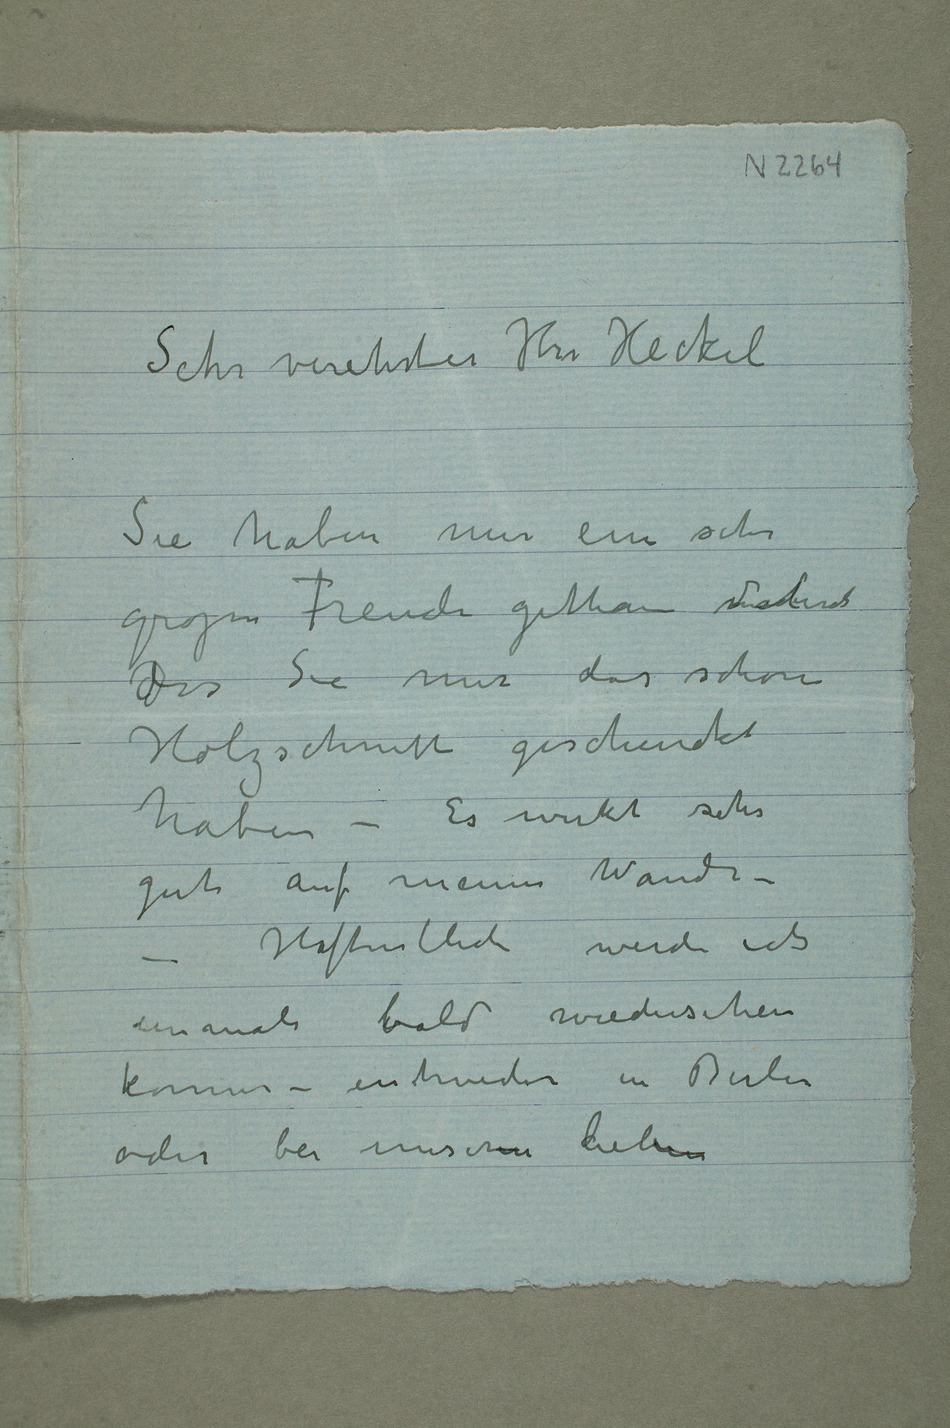 N 2264
Sehr verehrter Herr Heckel
Sie haben mir ein sehr
grossen Freude gethan
Das Sie mir das schöne
Holzschnitt geschenckt
haben – Es wirkt sehr
gut auf meinen Wande –
– Hoffentlich werde ich
einmals bald wiedersehen
kommen – entweder in Berlin
oder bei unseren lieben